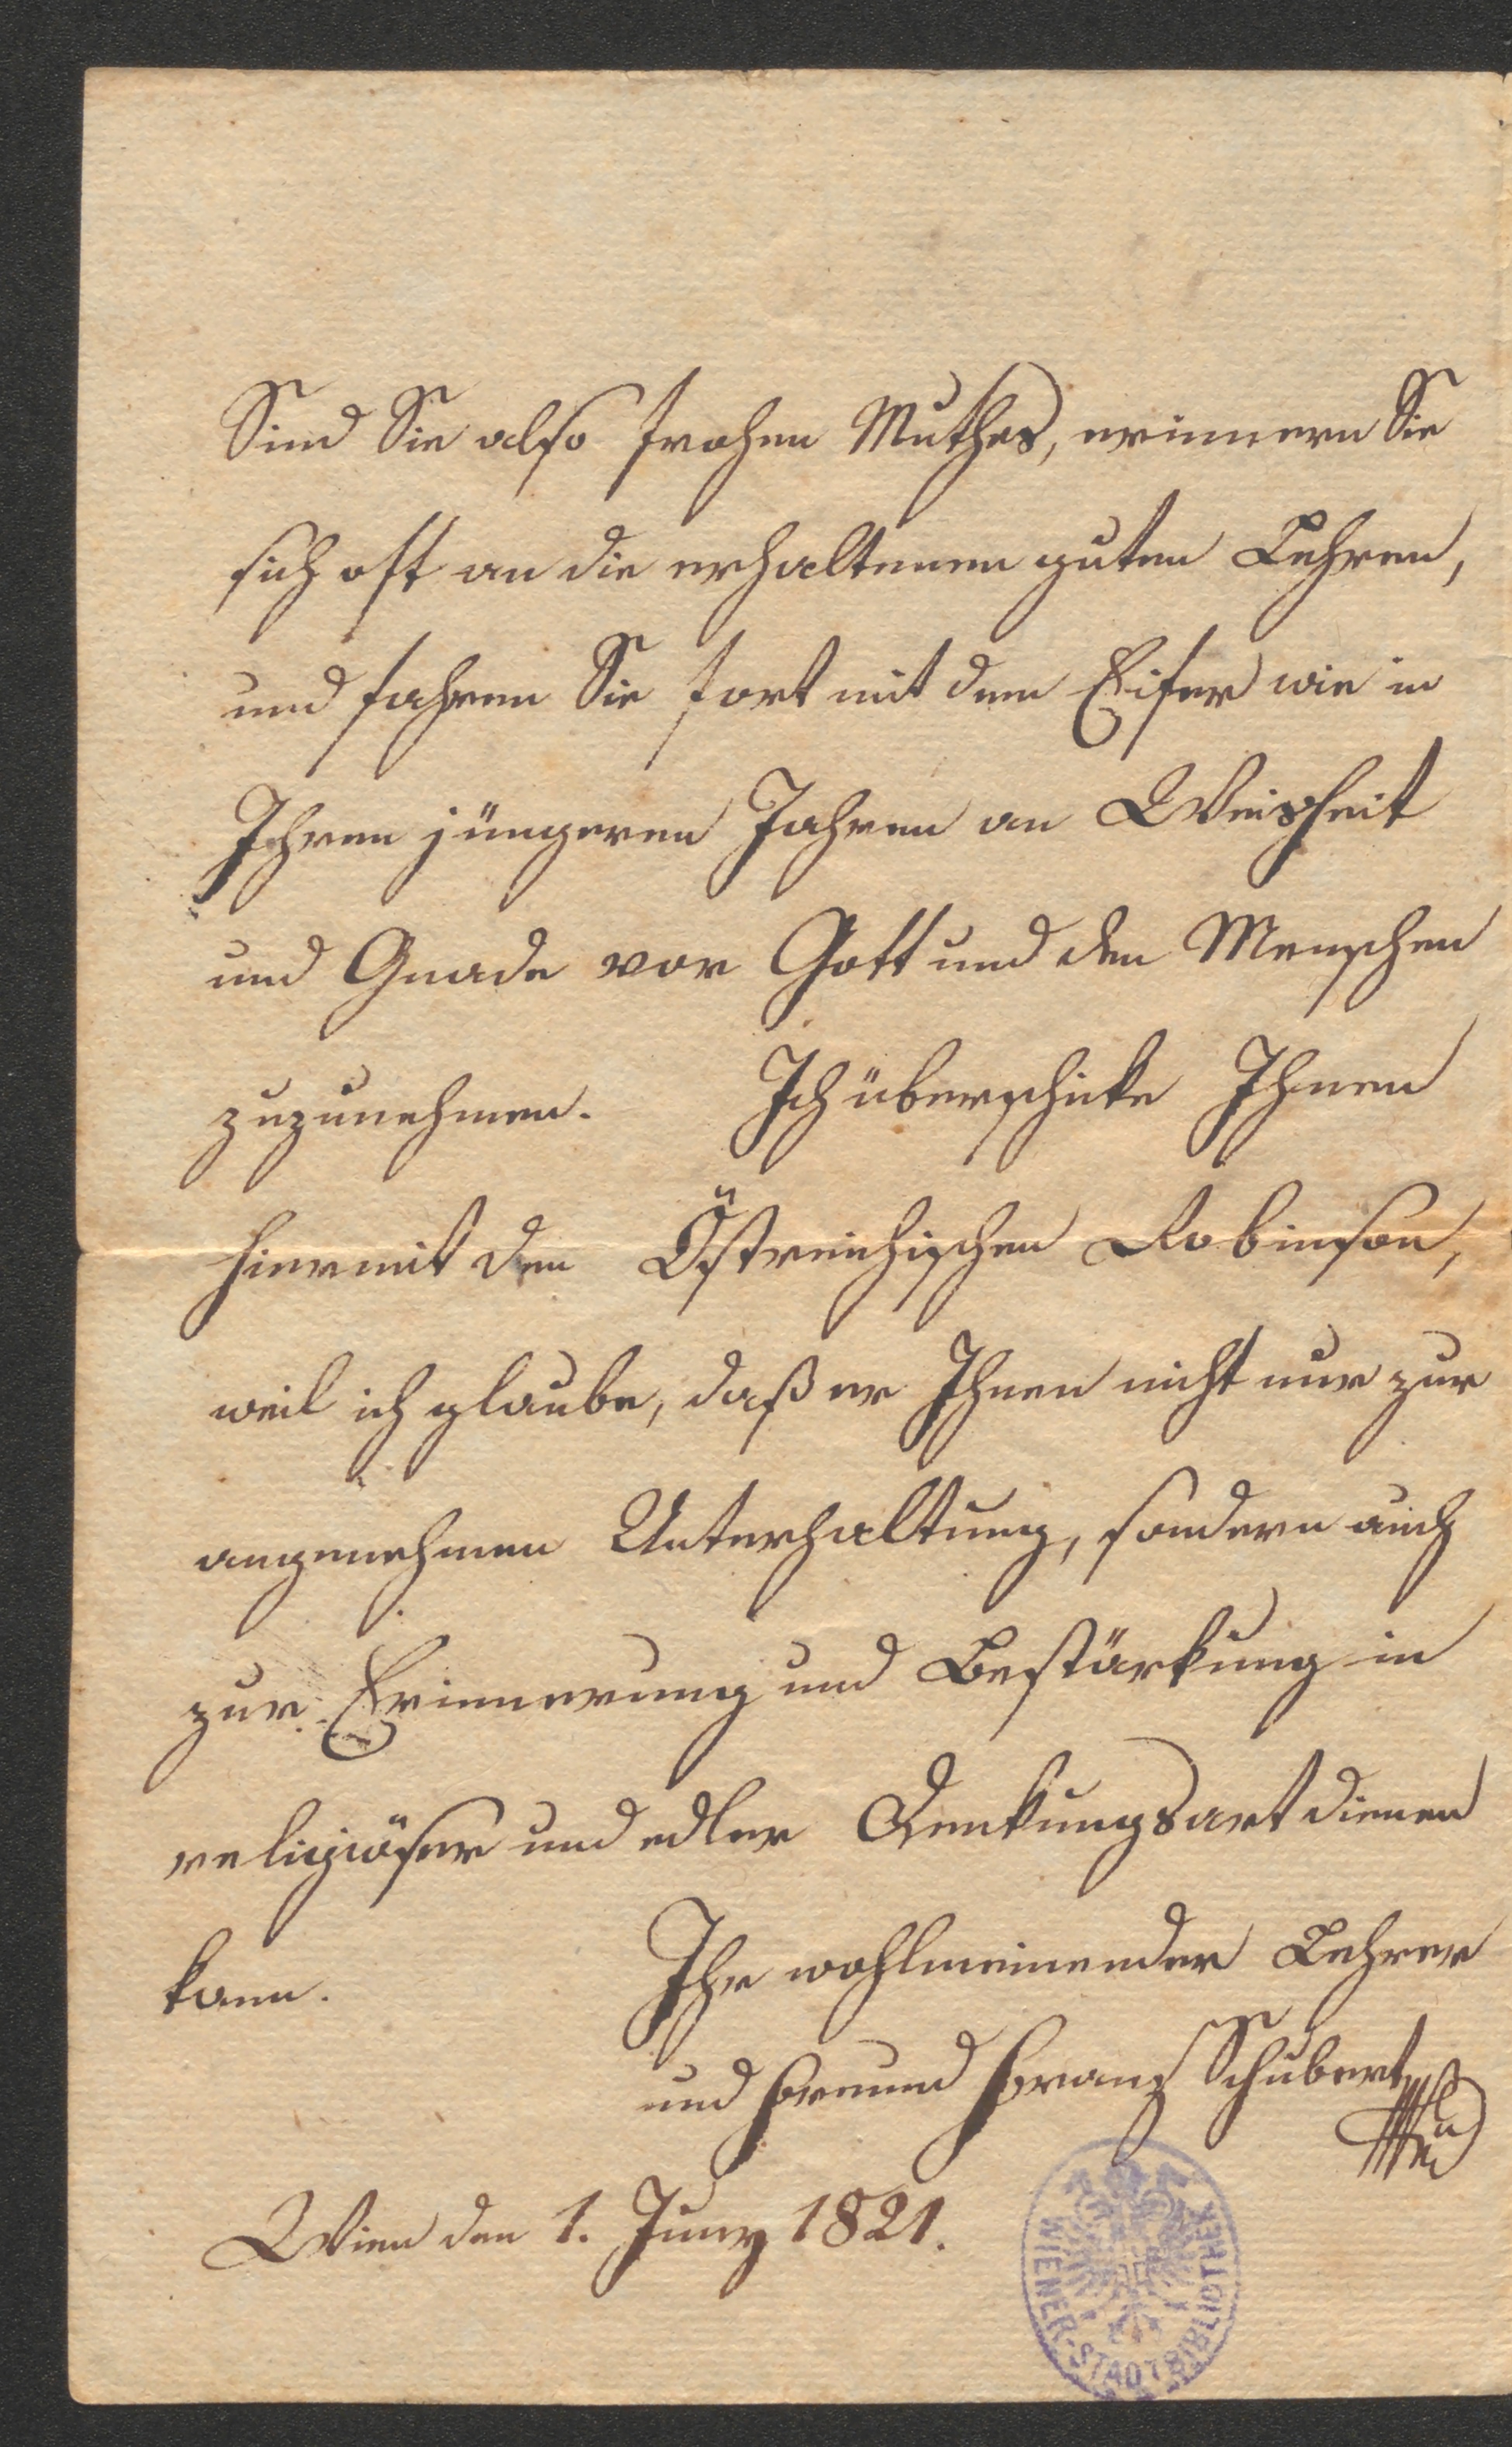 Sind Sie also frohen Muthes, erinnern Sie
sich oft an die erhaltenen guten Lehren,
und fahren Sie fort mit dem Eifer wie in
Ihren jüngeren Jahren an Weisheit
und Gnade vor Gott und den Menschen
zuzunehmen. Ich überschicke Ihnen
hiermit den Östreichischen Robinson,
weil ich glaube, daß er Ihnen nicht nur zur
angenehmen Unterhaltung, sondern auch
zur Erinnerung und Bestärkung in
religiöser und edler Denkungsart dienen
kann. Ihr wohlmeinender Lehrer
und Freund Franz Schubert
Wien den 1. Juny 1821.
WIENER-STADTBIBLIOTHEK